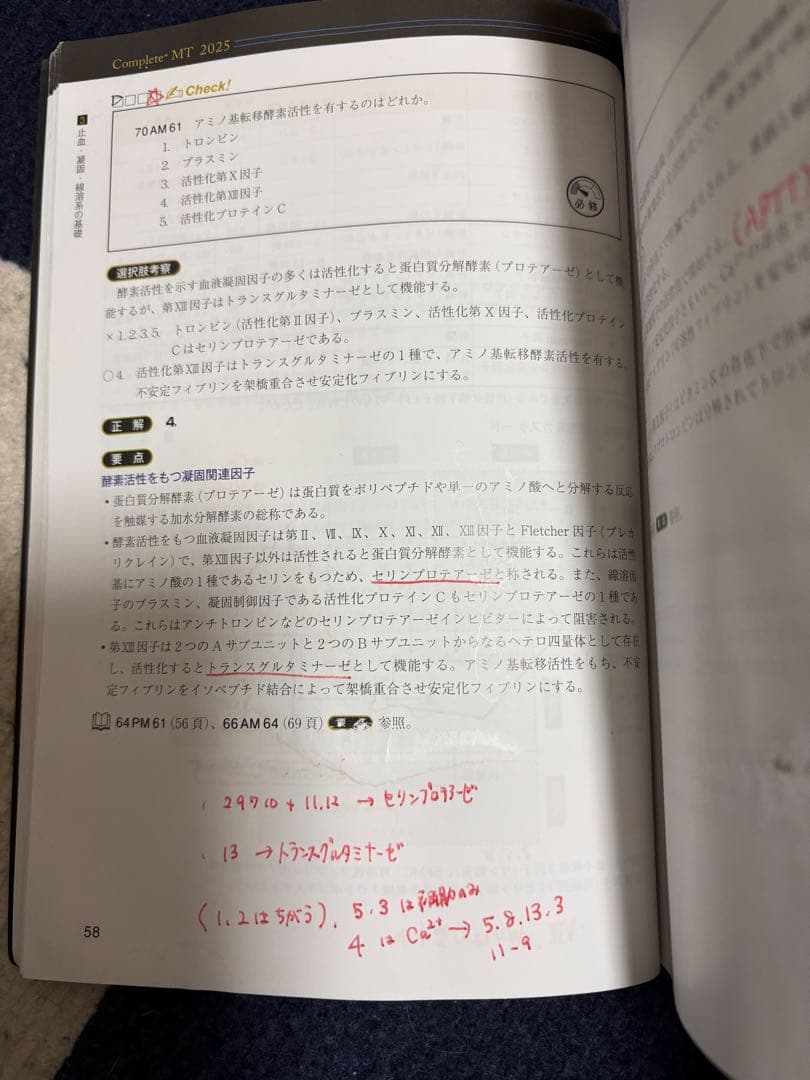 Complete+ MT 2025
Check!
3 止血・凝固・線溶系の基礎
70AM61 アミノ基転移酵素活性を有するのはどれか。
1. トロンビン
2. プラスミン
3. 活性化第Ⅹ因子
4. 活性化第ⅩⅢ因子
5. 活性化プロテインC
必修
選択肢考察
酵素活性を示す血液凝固因子の多くは活性化すると蛋白質分解酵素(プロテアーゼ)として機
能するが、第ⅩⅢ因子はトランスグルタミナーゼとして機能する。
×1.2.3.5. トロンビン(活性化第Ⅱ因子)、プラスミン、活性化第Ⅹ因子、活性化プロテイン
Cはセリンプロテアーゼである。
○4. 活性化第ⅩⅢ因子はトランスグルタミナーゼの1種で、アミノ基転移酵素活性を有する。
不安定フィブリンを架橋重合させ安定化フィブリンにする。
正解 4.
要点
酵素活性をもつ凝固関連因子
・蛋白質分解酵素(プロテアーゼ)は蛋白質をポリペプチドや単一のアミノ酸へと分解する反応
を触媒する加水分解酵素の総称である。
・酵素活性をもつ血液凝固因子は第Ⅱ、Ⅶ、Ⅸ、Ⅹ、Ⅺ、Ⅻ、ⅩⅢ因子とFletcher因子(プレカ
リクレイン)で、第ⅩⅢ因子以外は活性されると蛋白質分解酵素として機能する。これらは活性
基にアミノ酸の1種であるセリンをもつため、セリンプロテアーゼと称される。また、線溶因
子のプラスミン、凝固制御因子である活性化プロテインCもセリンプロテアーゼの1種であ
る。これらはアンチトロンビンなどのセリンプロテアーゼインヒビターによって阻害される。
・第ⅩⅢ因子は2つのAサブユニットと2つのBサブユニットからなるヘテロ四量体として存在
し、活性化するとトランスグルタミナーゼとして機能する。アミノ基転移活性をもち、不安
定フィブリンをイソペプチド結合によって架橋重合させ安定化フィブリンにする。
64PM61(56頁)、66AM64(69頁) 要点 参照。
・29710+11.12→セリンプロテアーゼ
・13→トランスグルタミナーゼ
(1,2はちがう)、5.3は補助のみ
4はCa²⁺→5.8.13.3
11-9
58
(APTT)